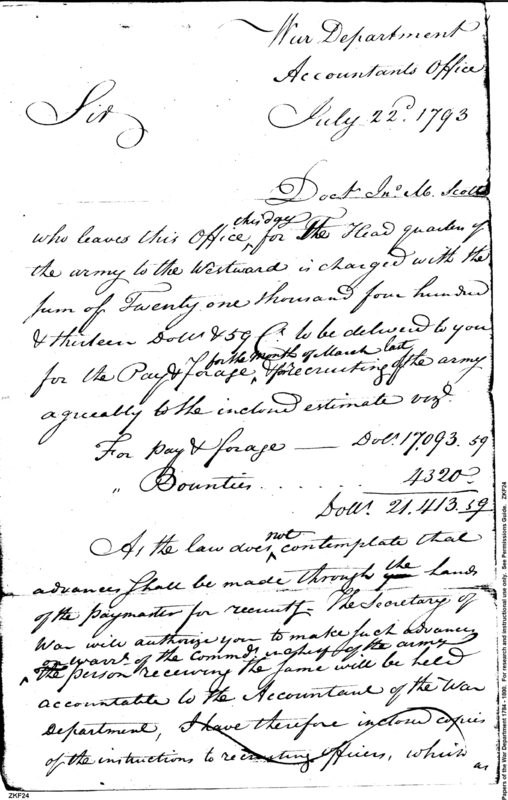 War Department
Accountants Office
Sir July 22d. 1793
Doctr Jno. M. Scott
who leaves this Office this day for The Head quarters of
the army to the Westward is charged with the
sum of Twenty one thousand four hundred
& thirteen Dolls & 59 Cs. to be delivered to you
for the Pay & forage for the month of March last & for recruiting of the army
agreeably to the inclosed estimate vizt.
For pay & forage — Dolls. 17,093. 59
" Bounties . . . . . . 4320
Dolls. 21.413.59
As the law does not contemplate that
advances shall be made through the hands
of the paymaster for recruitg. The Secretary of
War will authorize you to make such advances
on warrs. of the Commdr. in chief of the army
the person receiving the same will be held
accountable to the Accountant of the War
Department, I have therefore inclosed copies
of the instructions to recruiting officers, which
as
ZKF24
Papers of the War Department 1784 - 1800. For research and instructional use only. See Permissions Guide. ZKF24